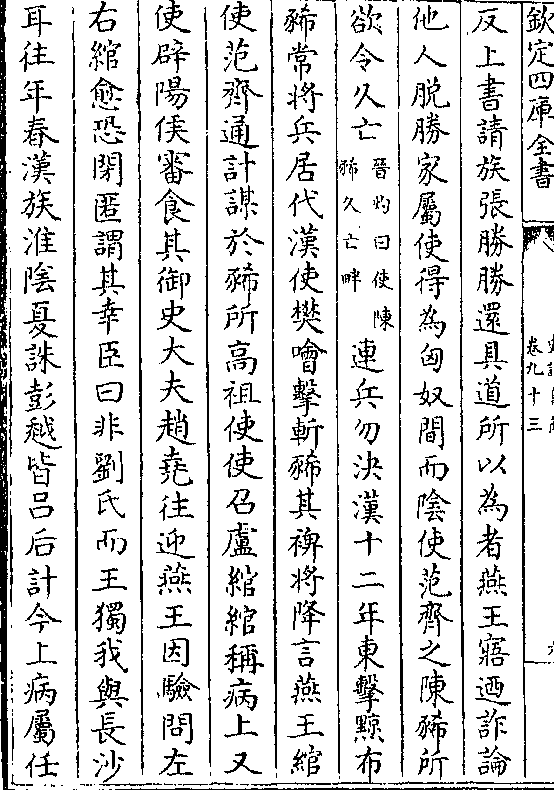 欽定四庫全書
卷九十三
反上書請族張勝勝還具道所以為者燕王寤迺詐論
他人脫勝家屬使得為匈奴間而陰使范齊之陳豨所
欲令久亡晉灼曰使陳豨久亡畔連兵勿決漢十二年東擊黥布
豨常將兵居代漢使樊噲擊斬豨其裨將降言燕王綰
使范齊通計謀於豨所高祖使使召盧綰綰稱病上又
使辟陽侯審食其御史大夫趙堯往迎燕王因驗問左
右綰愈恐閉匿謂其幸臣曰非劉氏而王獨我與長沙
耳往年春漢族淮陰夏誅彭越皆呂后計今上病屬任